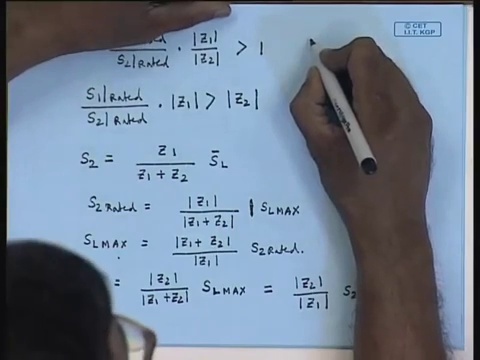 © CET
I.I.T. KGP
S₂|Rated · |Z₁|/|Z₂| > 1
S₁|Rated/S₂|Rated · |Z₁| > |Z₂|
S₂ = Z₁/(Z₁ + Z₂) S̄L
S₂ Rated = |Z₁|/|Z₁ + Z₂| | SLMAX
SLMAX = |Z₁ + Z₂|/|Z₁| S₂ Rated.
= |Z₂|/|Z₁ + Z₂| SLMAX = |Z₂|/|Z₁| S₂